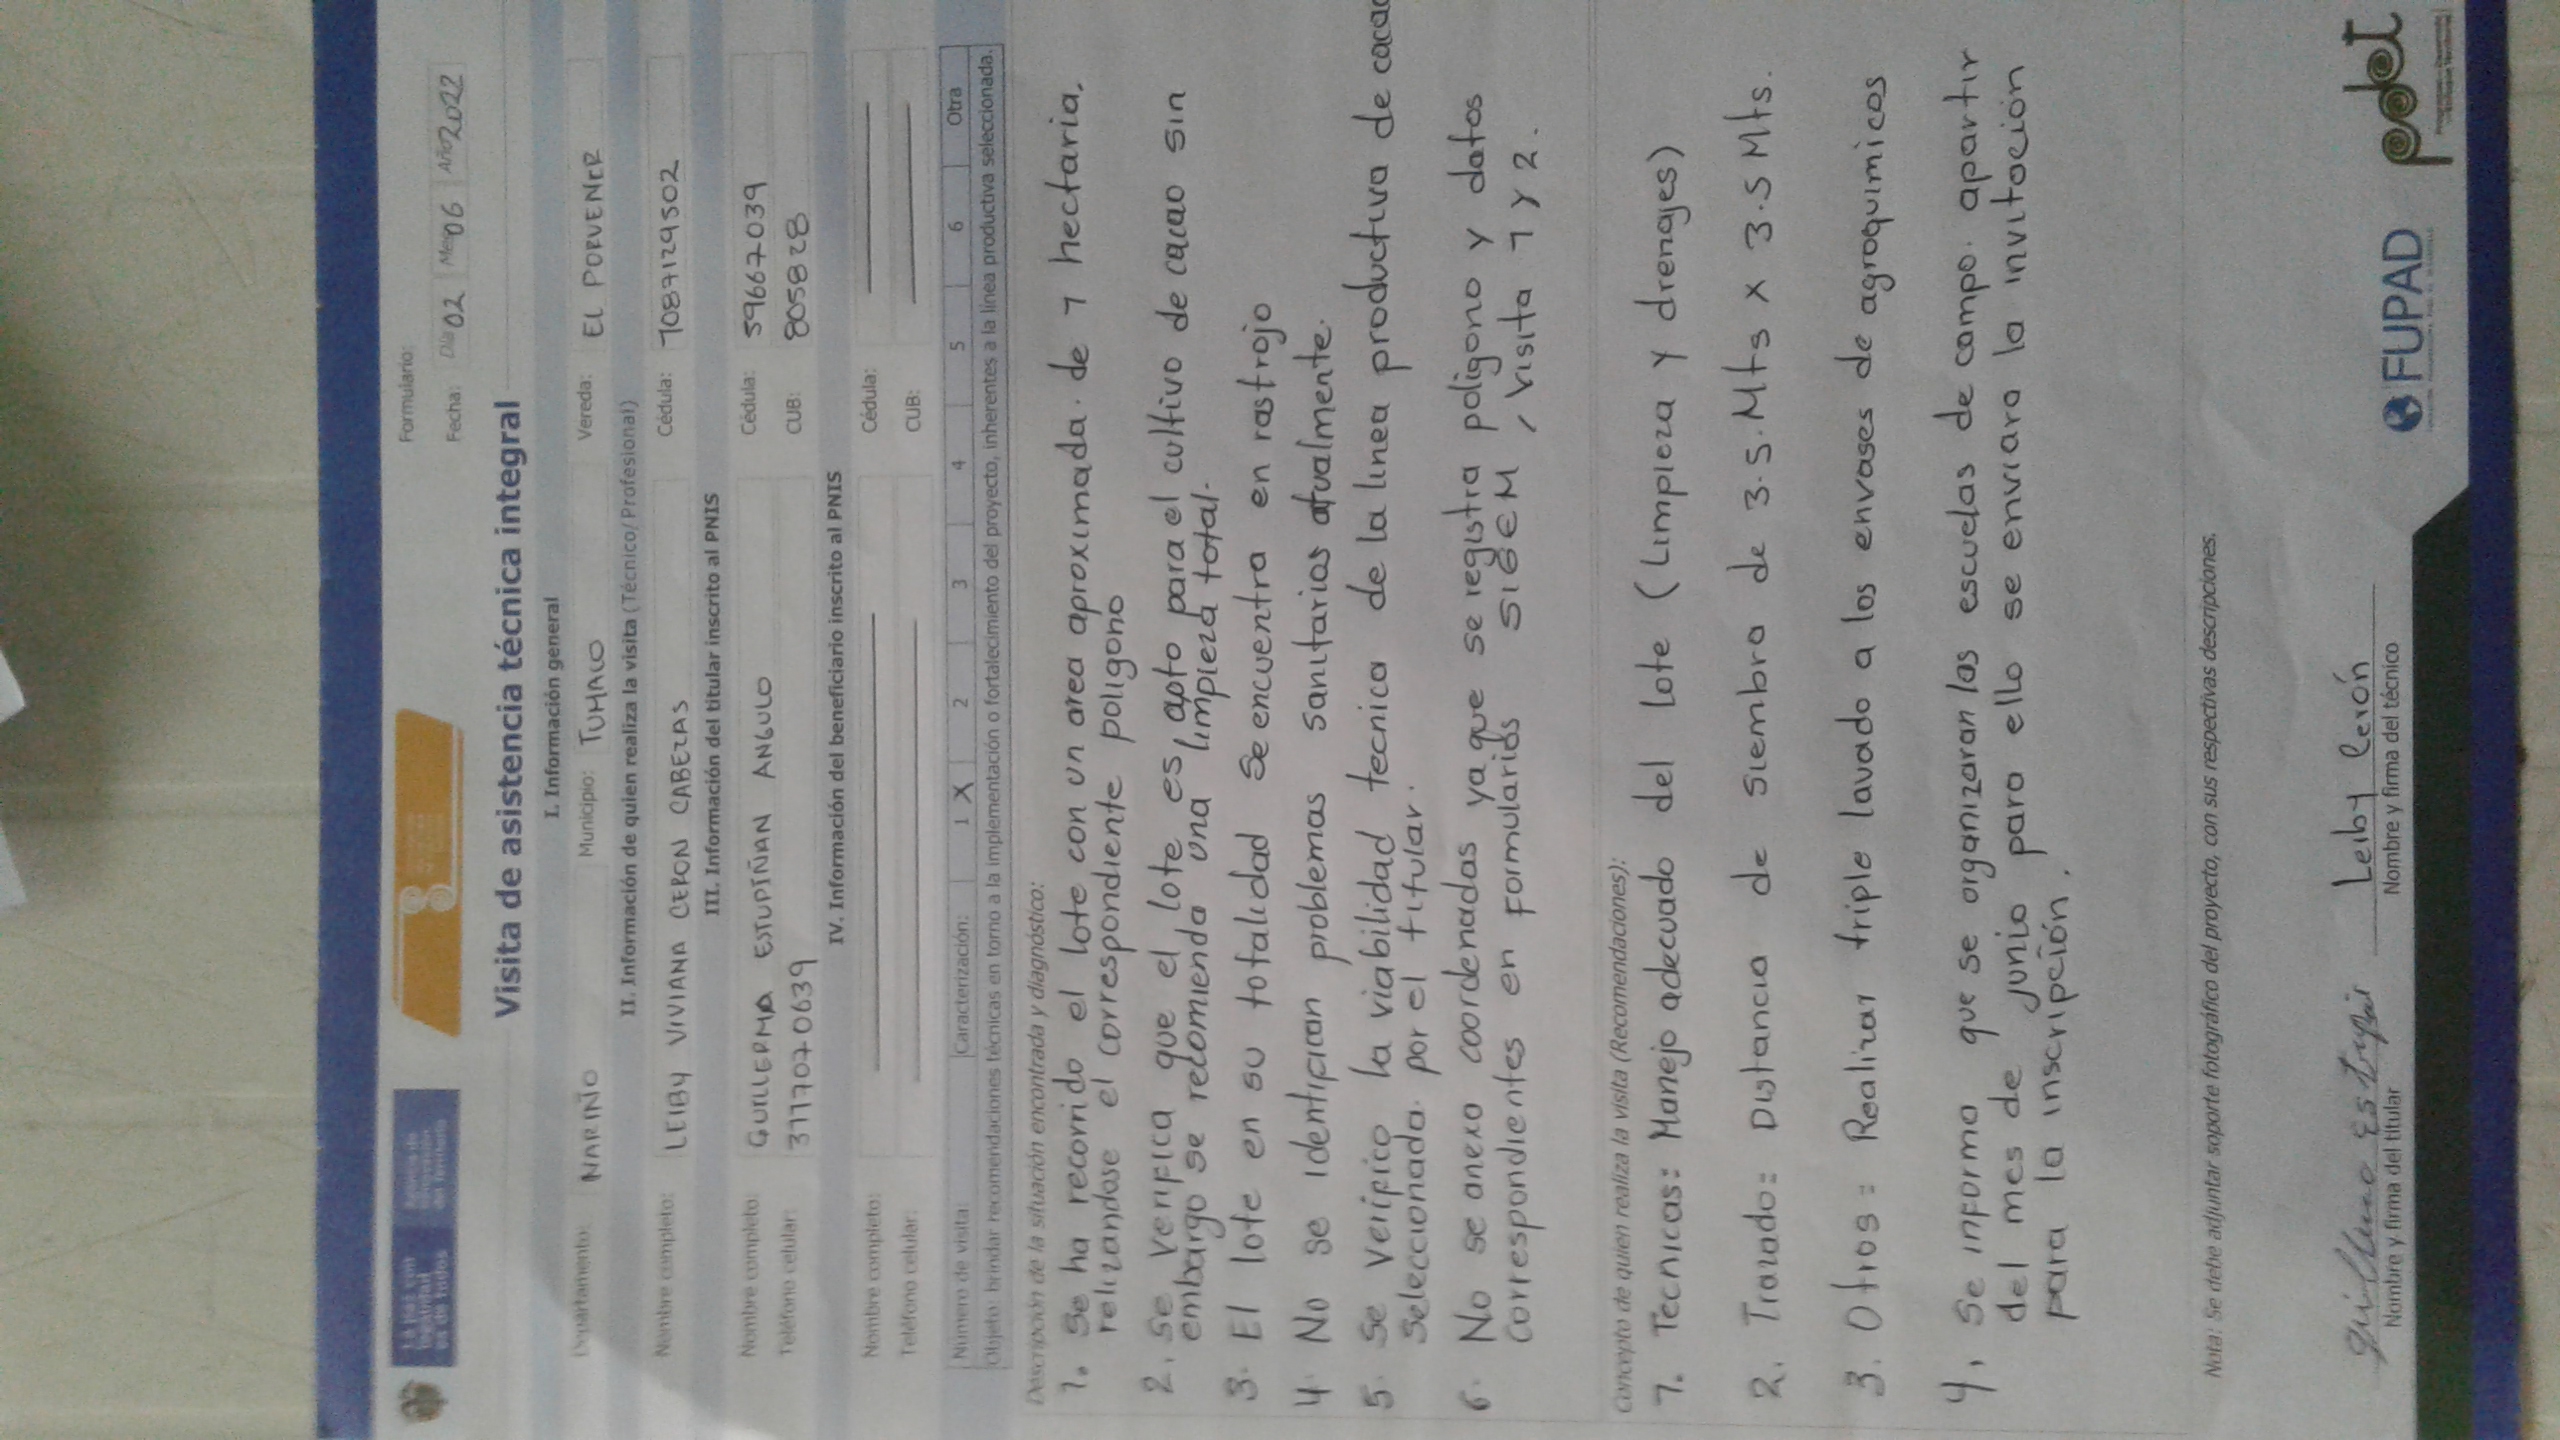 La paz con legalidad es de todos
Agencia de Renovación del Territorio
Formulario:
Fecha: Día 02 Mes 06 Año 2022
Visita de asistencia técnica integral
I. Información general
Departamento: NARIÑO Municipio: TUMACO Vereda: EL PORVENIR
II. Información de quien realiza la visita (Técnico/Profesional)
Nombre completo: LEIBY VIVIANA CERON CABEZAS Cédula: 1087129502
III. Información del titular inscrito al PNIS
Nombre completo: GUILLERMA ESTUPIÑAN ANGULO Cédula: 59667039
Teléfono celular: 3177070639 CUB: 805828
IV. Información del beneficiario inscrito al PNIS
Nombre completo: Cédula:
Teléfono celular: CUB:
Número de visita: Caracterización: 1 X 2 3 4 5 6 Otra
Objeto: brindar recomendaciones técnicas en torno a la implementación o fortalecimiento del proyecto, inherentes a la línea productiva seleccionada.
Descripción de la situación encontrada y diagnóstico:
1. Se ha recorrido el lote con un area aproximada. de 1 hectaria,
relizandose el correspondiente poligono
2. se verifica que el lote es apto para el cultivo de cacao sin
embargo se recomienda una limpieza total.
3. El lote en su totalidad se encuentra en rastrojo
4. No se identifican problemas sanitarios atualmente.
5. Se verifico la viabilidad tecnica de la linea productiva de cacao
seleccionada. por el titular.
6. No se anexo coordenadas ya que se registra poligono y datos
correspondientes en formularios SIGEM, visita 1 y 2.
Concepto de quien realiza la visita (Recomendaciones):
1. Tecnicas: Manejo adecuado del lote (Limpieza y drenajes)
2. Trazado: Distancia de siembra de 3.5.Mts x 3.5 Mts.
3. Otros: Realizar triple lavado a los envases de agroquimicos
4. Se informa que se organizaran las escuelas de campo. apartir
del mes de junio para ello se enviara la invitacion
para la inscripción.
Nota: Se debe adjuntar soporte fotográfico del proyecto, con sus respectivas descripciones.
Leiby Cerón
Nombre y firma del titular Nombre y firma del técnico
FUPAD
pdet